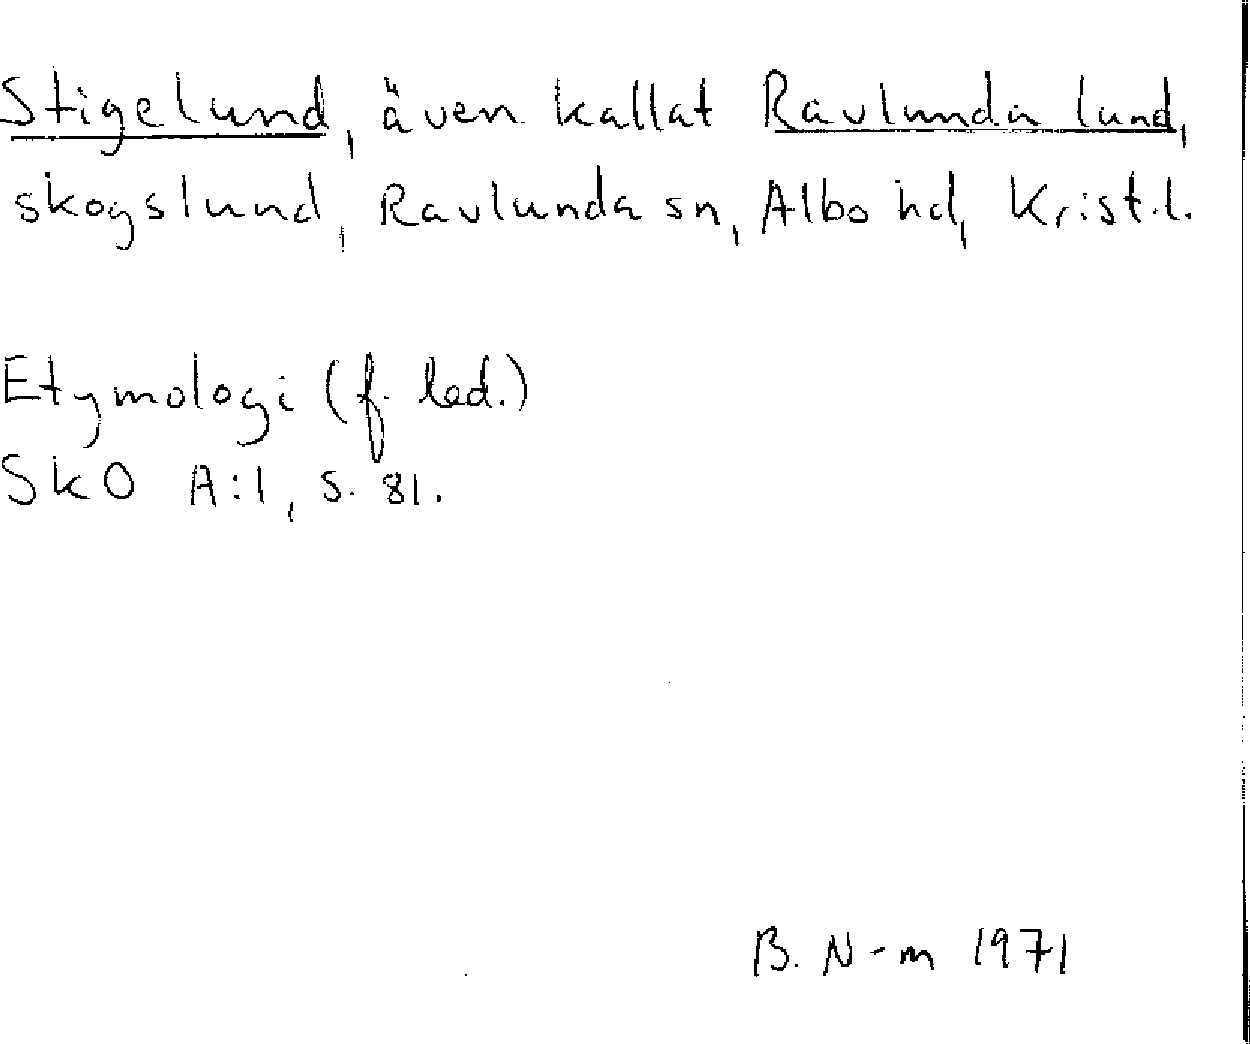 Stigelund, även kallat Ravlunda lund,
skogslund, Ravlunda sn, Albo hd, Krist.l.
Etymologi (f. led.)
SkO A:1, s. 81.
B. N-m 1971